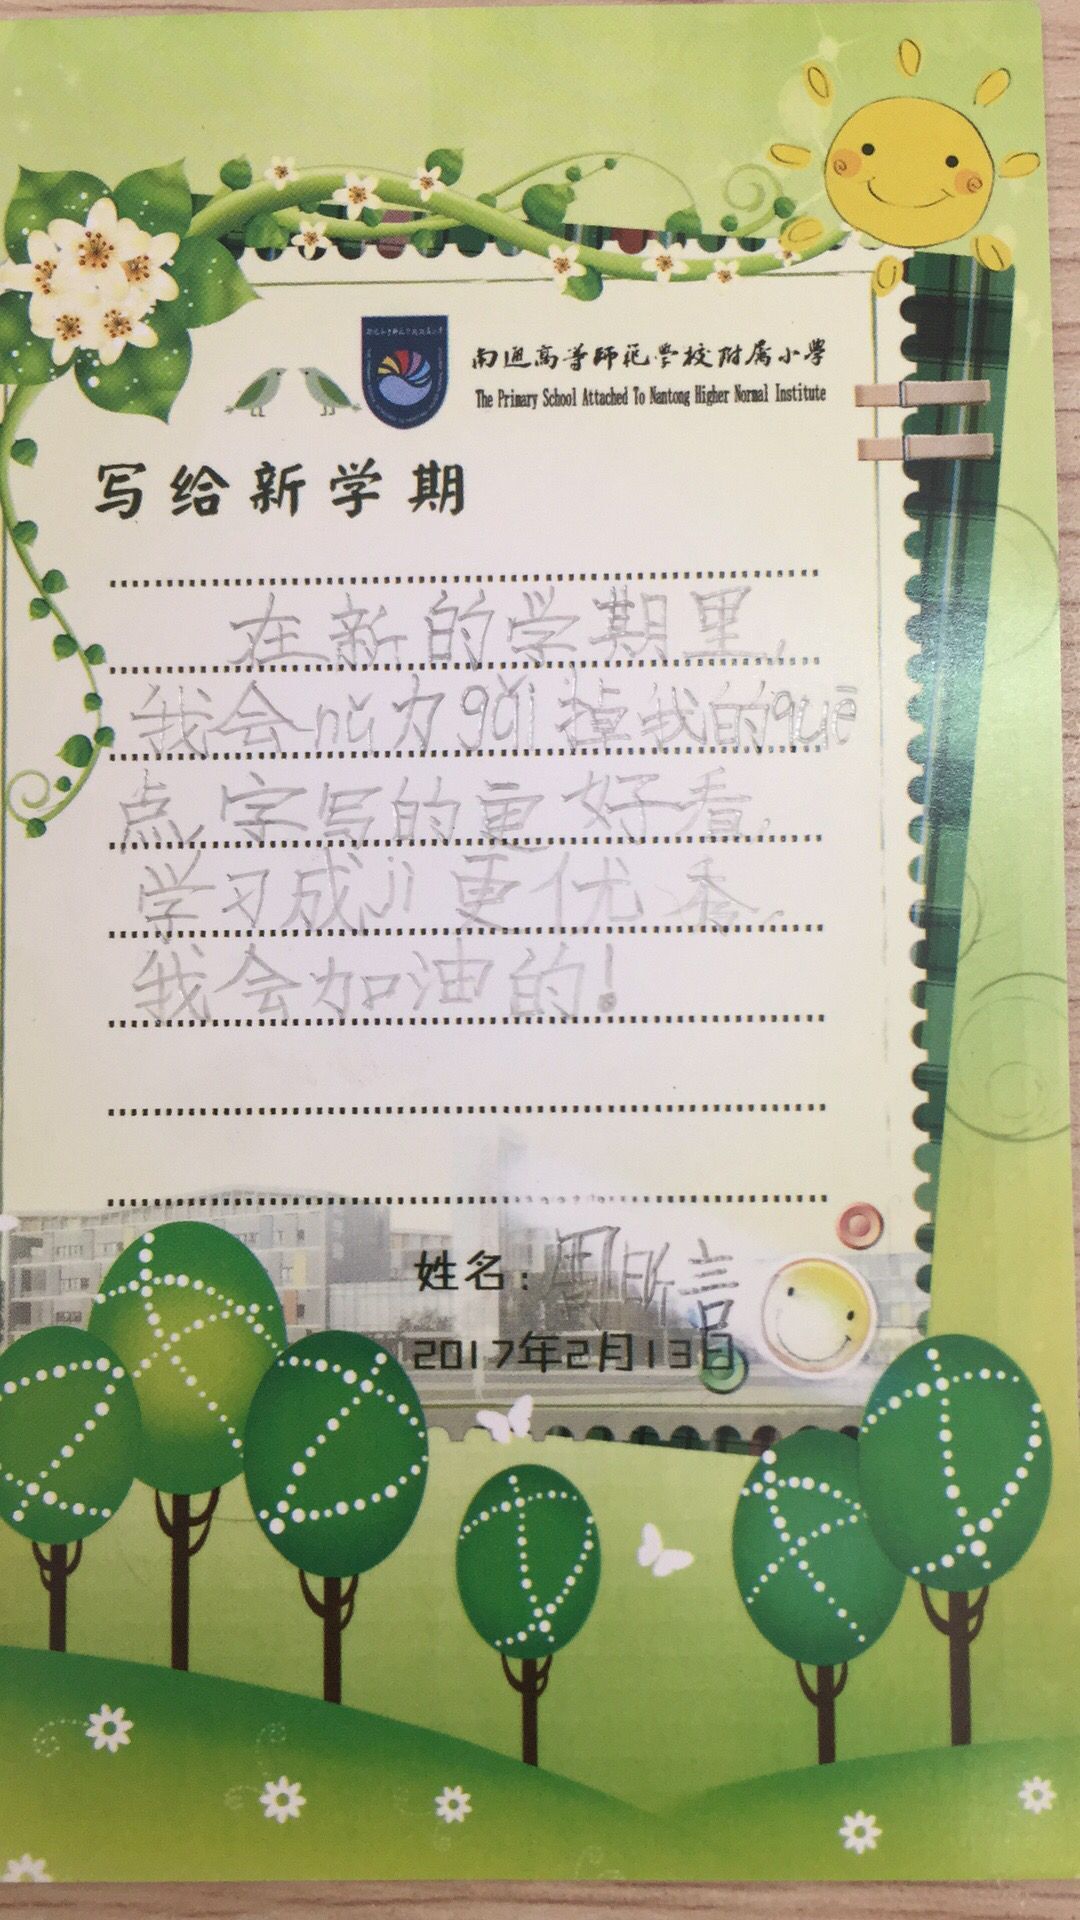 南通高等师范学校附属小学
The Primary School Attached To Nantong Higher Normal Institute
写给新学期
在新的学期里,
我会nǔ力gǎi掉我的quē
点,字写的更好看,
学习成jì更优秀,
我会加油的!
姓名:周昕言
2017年2月13日